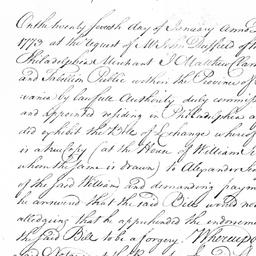 On the twenty fourth day of January Anno D
1773 at the request of Mr John Duffield of the
Philadelphia Merchant I Matthew Clar
and Tabellion Public within the Province of
vania by lawfull Authority duly commiss
and appointed residing in Philadelphia a
did exhibit the Bill of Exchange whereof
is a true Copy (at the House of William
whom the same is drawn) to Alexander
of the said William and demanding paym
he answered that the said Bill would not
alledging that he apprehended the endorseme
the said Bill to be a forgery. Whereupo